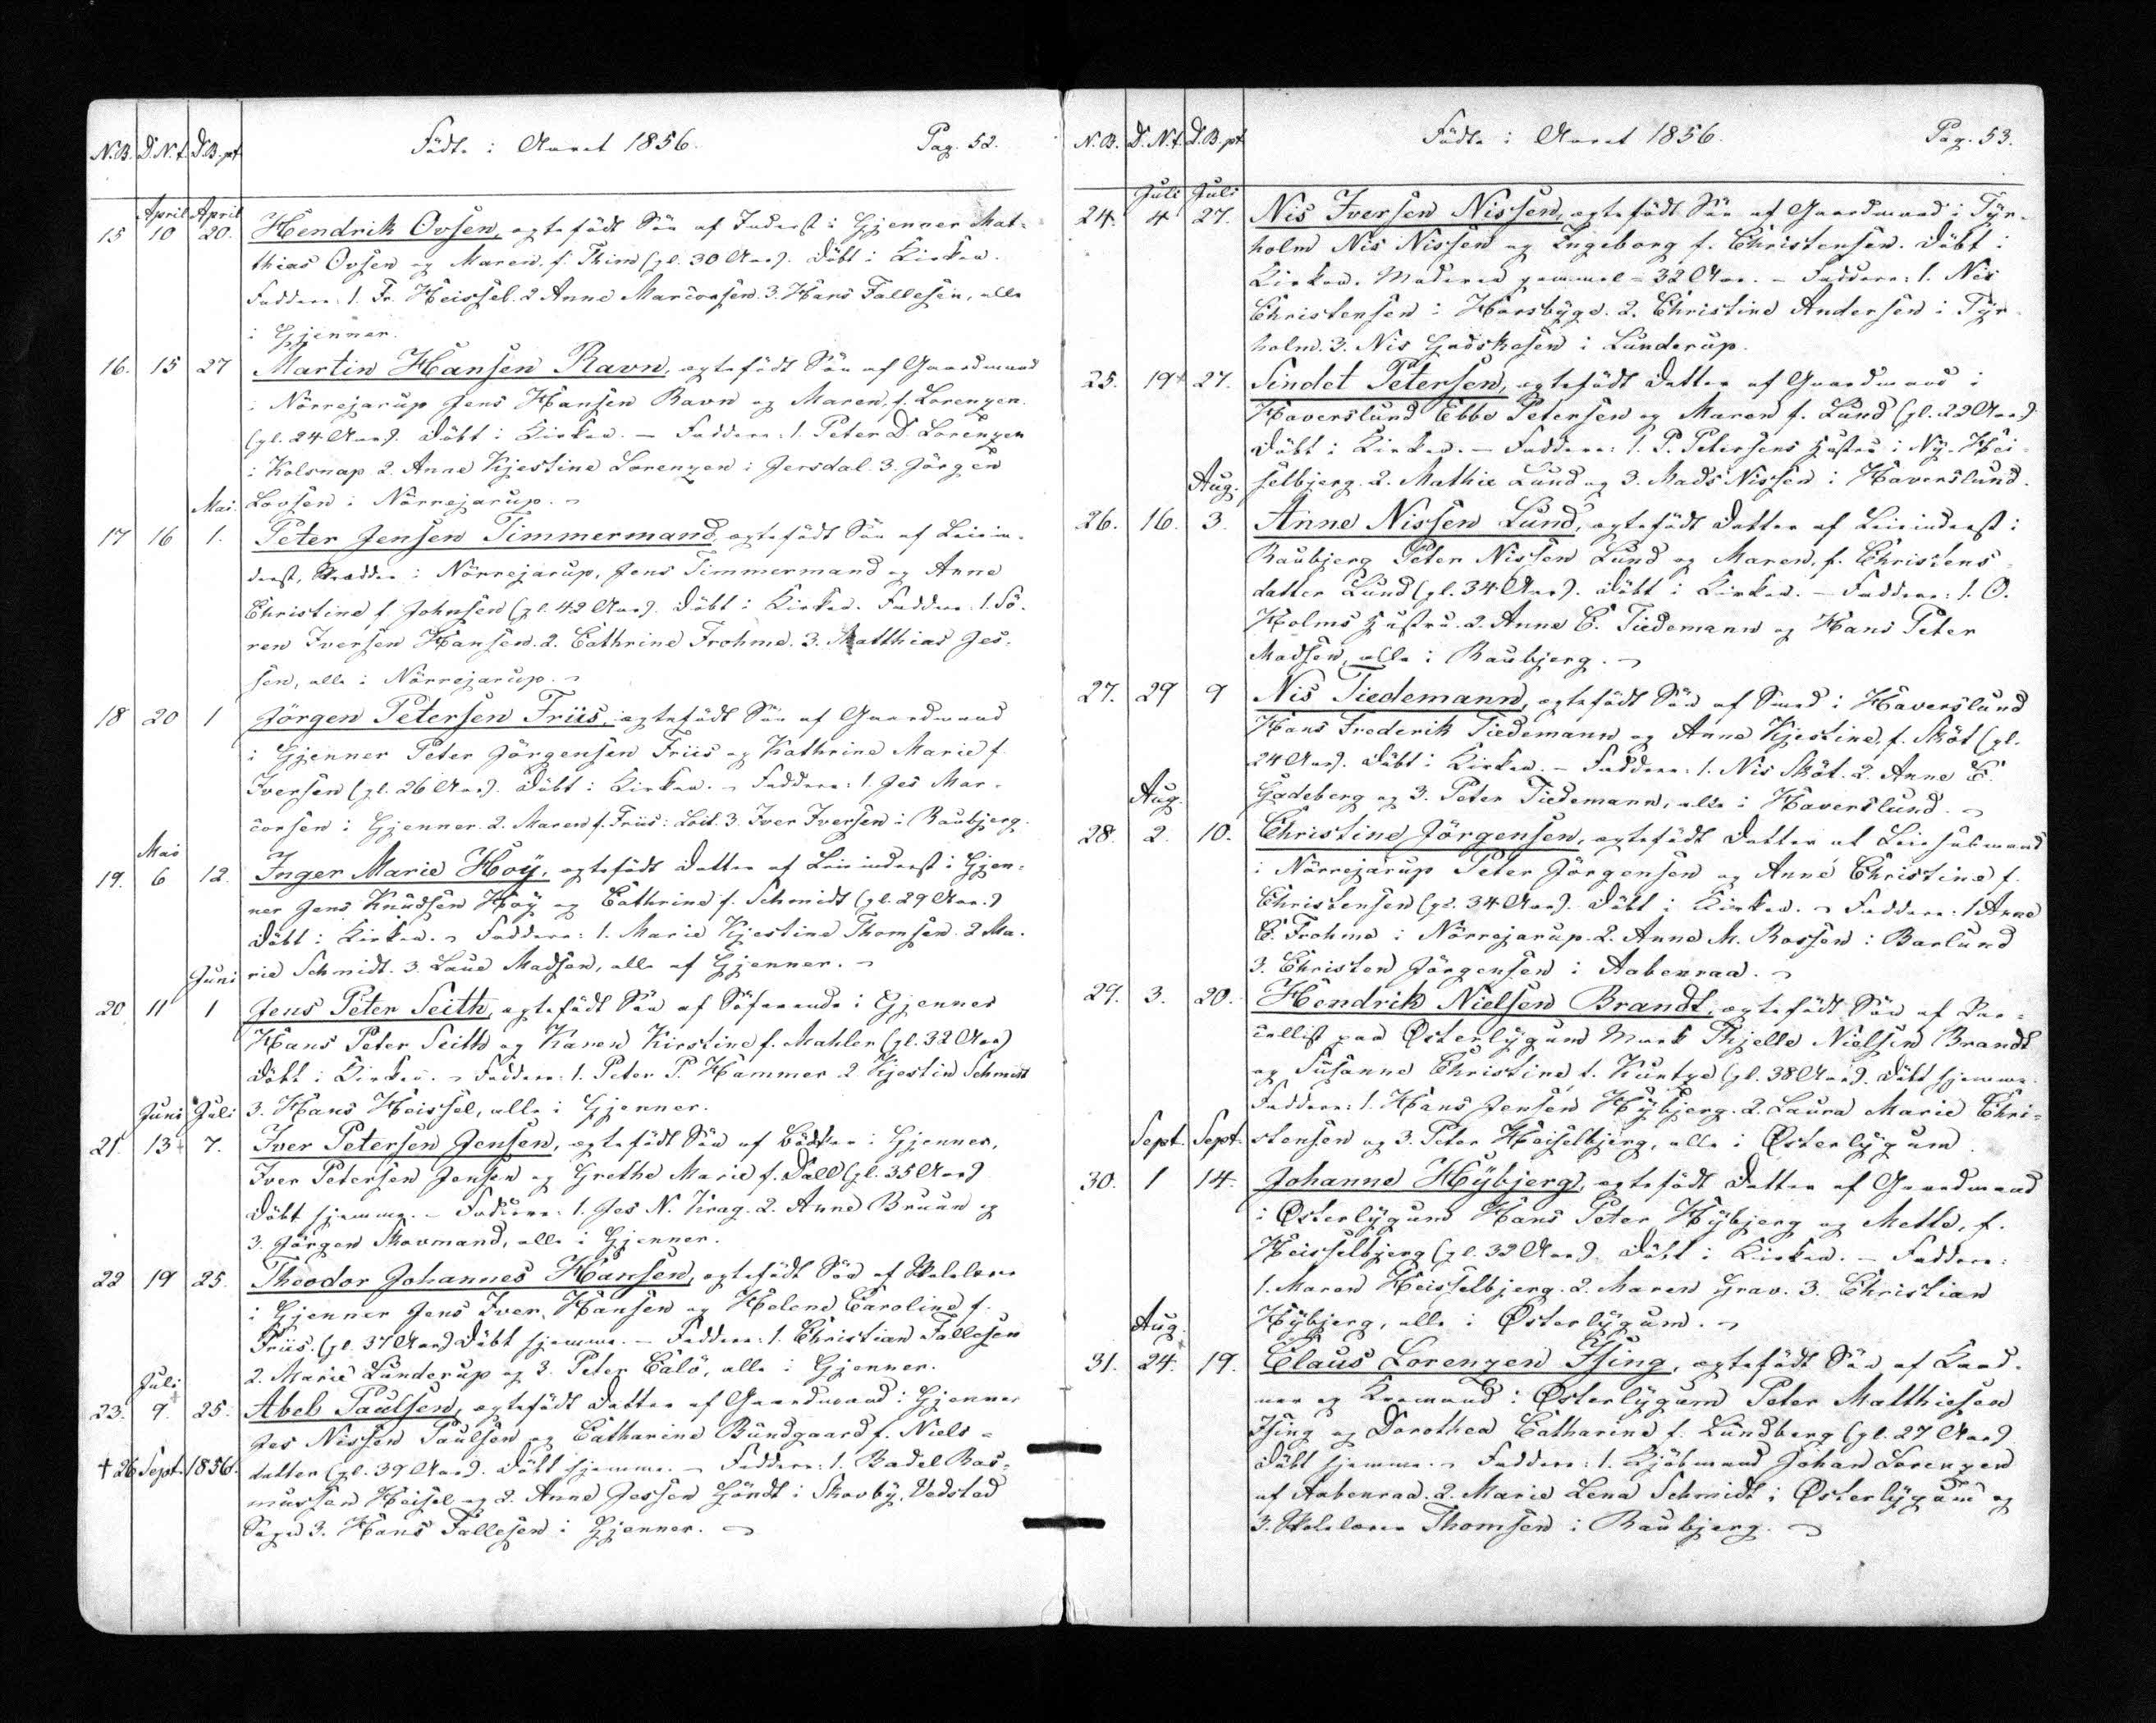 N.B. D.N.f. D.B.pt. Födte i Aaret 1856. Pag. 52.
April April
15 10 20. Hendrik Ovsen, ægtefödt Sön af Inderst i Gjenner Mat-
thias Ovsen og Maren, f. Thim (gl. 30 Aar). Döbt i Kirken.
Faddere: 1. Fr. Heissel. 2 Anne Marcorsen. 3. Hans Fallesen, alle
i Gjenner.
16. 15 27 Martin Hansen Ravn, ægtefödt Sön af Gaardmand
i Nörrejarup Jens Hansen Ravn og Maren, f. Lorenzen.
(gl. 24 Aar). Döbt i Kirken. – Faddere: 1. Peter D. Lorenzen
i Kolsnap 2. Anne Kjestine Lorenzen i Jersdal. 3. Jörgen
Mai. Lovsen i Nörrejarup. –
17 16 1. Peter Jensen Timmermand, ægtefödt Sön af Leiein-
derst, Skrædder i Nörrejarup, Jens Timmermand og Anne
Christine f. Johnsen (gl. 42 Aar). Döbt i Kirken. Faddere: 1. Sö-
ren Iversen Hansen. 2. Cathrine Frohme. 3. Matthias Jes-
sen, alle i Nörrejarup. –
18 20 1 Jörgen Petersen Friis, ægtefödt Sön af Gaardmand
i Gjenner Peter Jörgensen Friis og Kathrine Marie f.
Iversen (gl. 26 Aar). Döbt i Kirken. – Faddere: 1. Jes Mar-
corsen i Gjenner. 2. Maren f. Friis i Loit. 3. Iver Iversen i Raubjerg.
Mai
19. 6 12. Inger Marie Hoÿ, ægtefödt Datter af Leieinderst i Gjen-
ner Jens Knudsen Hoÿ og Cathrine f. Schmidt (gl. 29 Aar.)
Döbt i Kirken. – Faddere: 1. Marie Kjestine Thomsen. 2 Ma-
Juni rie Schmidt. 3. Laue Madsen, alle af Gjenner. –
20 11 1 Jens Peter Seith, ægtefödt Sön af Söfarende i Gjenner
Hans Peter Seith og Karen Kirstine f. Mahler (gl. 32 Aar)
Döbt i Kirken. – Faddere: 1. Peter P. Hammer 2 Kjestin Schmidt
Juni Juli 3. Hans Heissel, alle i Gjenner.
21. 13 7. Iver Petersen Jensen, ægtefödt Sön af Bödker i Gjenner,
Iver Petersen Jensen og Grethe Marie f. Dall (gl. 35 Aar)
Döbt hjemme. – Faddere: 1. Jes N. Krag. 2. Anne Bruun og
3. Jörgen Skovmand, alle i Gjenner.
22 19 25. Theodor Johannes Hansen, ægtefödt Sön af Skolelærer
i Gjenner Jens Iver Hansen og Helene Caroline f.
Friis. (gl. 37 Aar) Döbt hjemme. – Faddere: 1. Christian Fallesen
2. Marie Lunderup og 3. Peter Calö, alle i Gjenner.
Juli
23. 9. 25. Abel Paulsen, ægtefödt Datter af Gaardmand i Gjenner
Jes Nissen Paulsen og Catharine Bundgaard f. Niels-
† 26 Sept. 1856. datter (gl. 39 Aar). Döbt hjemme. – Faddere: 1. Badel Ras-
mussen Heisel og 2. Anne Jessen Höndt i Skovbÿ, Vedsted
Sogn 3. Hans Fallesen i Gjenner. –
N.B. D.N.f. D.B.pt. Födte i Aaret 1856. Pag. 53.
Juli Juli
24. 4 27. Nis Iversen Nissen, ægtefödt Sön af Gaardmand i Tÿr-
holm Nis Nissen og Ingeborg f. Christensen. Döbt i
Kirken. Moderen gammel = 32 Aar. – Faddere: 1. Nis
Christensen i Horsbÿge. 2. Christine Andersen i Tÿr-
holm. 3. Nis Godskesen i Lunderup.
25. 19 27. Sindet Petersen, ægtefödt Datter af Gaardmand i
Haverslund Ebbe Petersen og Maren f. Lund (gl. 22 Aar)
Döbt i Kirken. – Faddere: 1. P. Petersens Hustru i Nÿ-Hei-
Aug. selbjerg. 2. Mathie Lund og 3. Mads Nissen i Haverslund.
26. 16. 3. Anne Nissen Lund, ægtefödt Datter af Leieinderst i
Raubjerg Peter Nissen Lund og Maren, f. Christens-
datter Lund (gl. 34 Aar). Döbt i Kirken. – Faddere: 1. O.
Holms Hustru. 2. Anne C. Tiedemann og Hans Peter
Madsen, alle i Raubjerg. –
27. 29 9 Nis Tiedemann, ægtefödt Sön af Smed i Haverslund
Hans Frederik Tiedemann og Anne Kjestine, f. Sköt (gl.
24 Aar). Döbt i Kirken. – Faddere: 1. Nis Sköt. 2. Anne C.
Aug. Gadeberg og 3. Peter Tiedemann, alle i Haverslund. –
28. 2. 10. Christine Jörgensen, ægtefödt Datter af Leiehusmand
i Nörrejarup Peter Jörgensen og Anne Christine f.
Christensen (gl. 34 Aar). Döbt i Kirken. – Faddere: 1 Anne
C. Frohme i Nörrejarup. 2. Anne M. Bossen i Barlund
3. Christen Jörgensen i Aabenraa. –
29. 3. 20. Hendrik Nielsen Brandt, ægtefödt Sön af Par-
cellist paa Østerlÿgum Mark Thjelle Nielsen Brandt
og Susanne Christine f. Kuntze (gl. 38 Aar). Döbt hjemme.
Faddere: 1. Hans Jensen Hÿbjerg. 2. Laura Marie Chri-
Sept. Sept. stensen og 3. Peter Heiselbjerg, alle i Østerlÿgum.
30. 1 14. Johanne Hÿbjerg, ægtefödt Datter af Gaardmand
i Østerlÿgum Hans Peter Hÿbjerg og Mette, f.
Heisselbjerg (gl. 32 Aar). Döbt i Kirken. – Faddere:
1. Maren Heisselbjerg. 2. Maren Grav. 3. Christian
Aug. Hÿbjerg, alle i Østerlÿgum. –
31. 24. 19. Claus Lorenzen Ising, ægtefödt Sön af Kaad-
ner og Kromand i Østerlÿgum Peter Matthiesen
Ising og Dorothea Catharine f. Lundberg (gl. 27 Aar)
Döbt hjemme. – Faddere: 1. Kjöbmand Johan Lorenzen
af Aabenraa. 2. Marie Lena Schmidt i Østerlÿgum og
3. Skolelærer Thomsen i Raubjerg. –